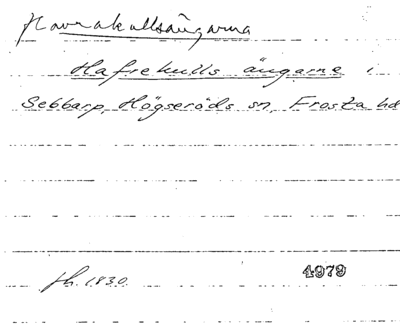 Havrakullsängarna
Hafrekulls ängarne i
Sebbarp, Högseröds sn, Frosta hd
fh. 1830.
4979